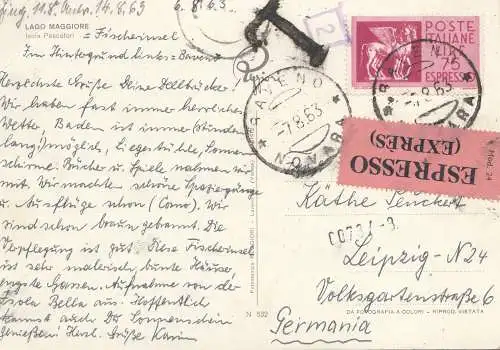 ging 11.8. Antw. 14.8.63 6.8.63
LAGO MAGGIORE
Isola Pescatori
= Fischerinsel
Im Hintergrund links = Baveno
Herzlichste Grüße Deine Dollbrücks!
Wir haben fast immer herrliches
Wetter, Baden ist immer (stunden
lang) möglich, Liegestühle, Sonnen-
schirme. Bücher u. Spiele nahmen wir
mit. Wir machten schöne Spaziergänge
u. Ausflüge schon (Cano). Wir sind
schon braun gebrannt. Die
Verpflegung ist gut. Diese Fischerinsel
ist sehr malerisch, bunte Häuser,
engste Gassen. Aufnahme von der
Isola Bella aus. Hoffentlich
kannst auch Du Sonnenschein
genießen! Herzl. Grüße Karin
T
2
POSTE
ITALIANE
75
ESPRESSO
BAVENO
-7.8.63
NOVARA
BAVENO
-7.8.63
NOVARA
ESPRESSO
(EXPRÈS)
Mod. 24
Käthe Penckert
00734-9
Leipzig - N 24
Volksgartenstraße 6
Germania
N 532
DA FOTOGRAFIA A COLORI - RIPROD. VIETATA